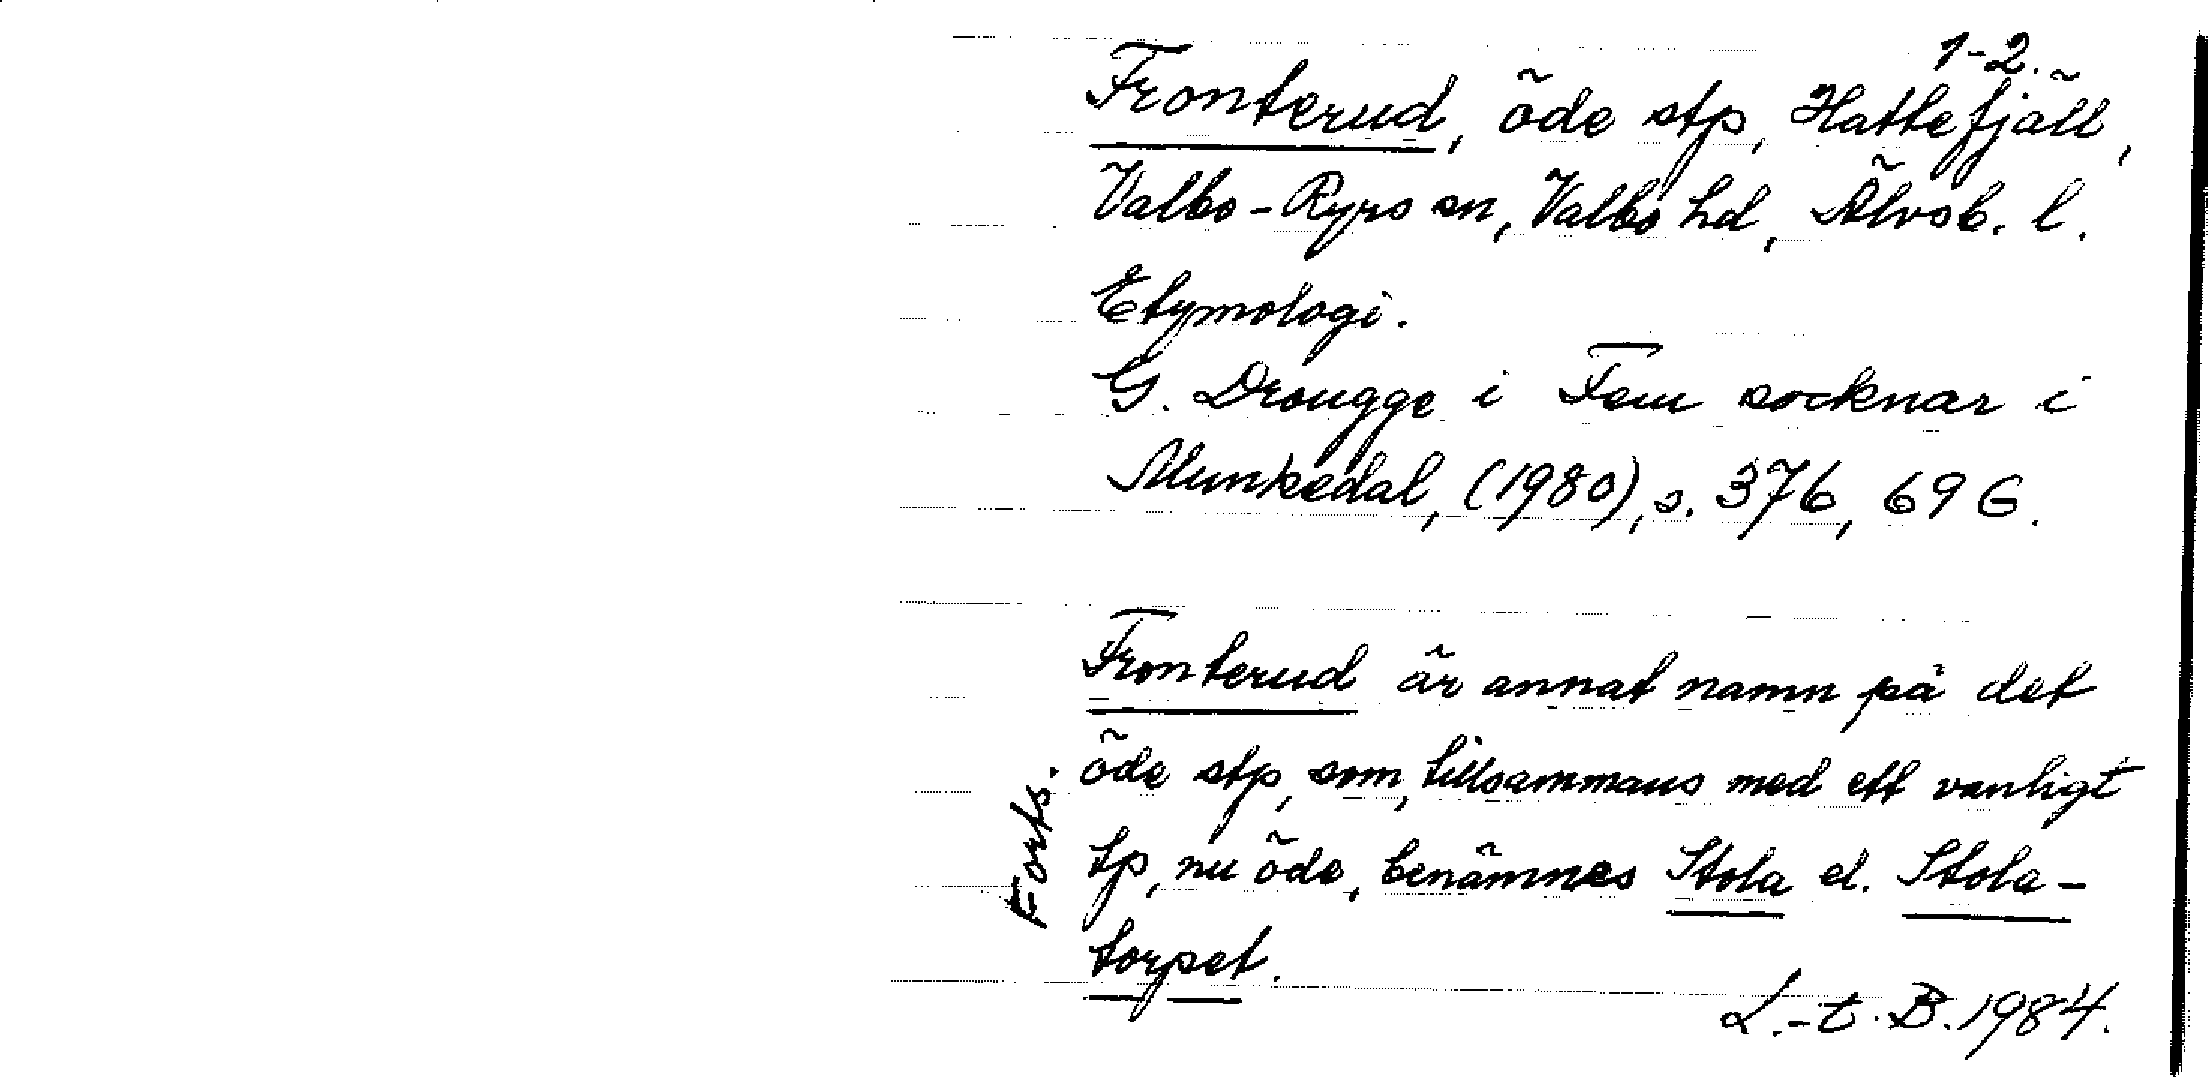 1-2.
Fronterud, öde stp, Hattefjäll,
Valbo-Ryrs sn, Valbo hd, Älvsb. l.
Etymologi.
G. Drougge i Fem socknar i
Munkedal, (1980), s. 376, 696.
Fronterud är annat namn på det
öde stp, som, tillsammans med ett vanligt
tp, nu öde, benämnes Stola el. Stola-
torpet.
L.-t. B. 1984.
Forts.